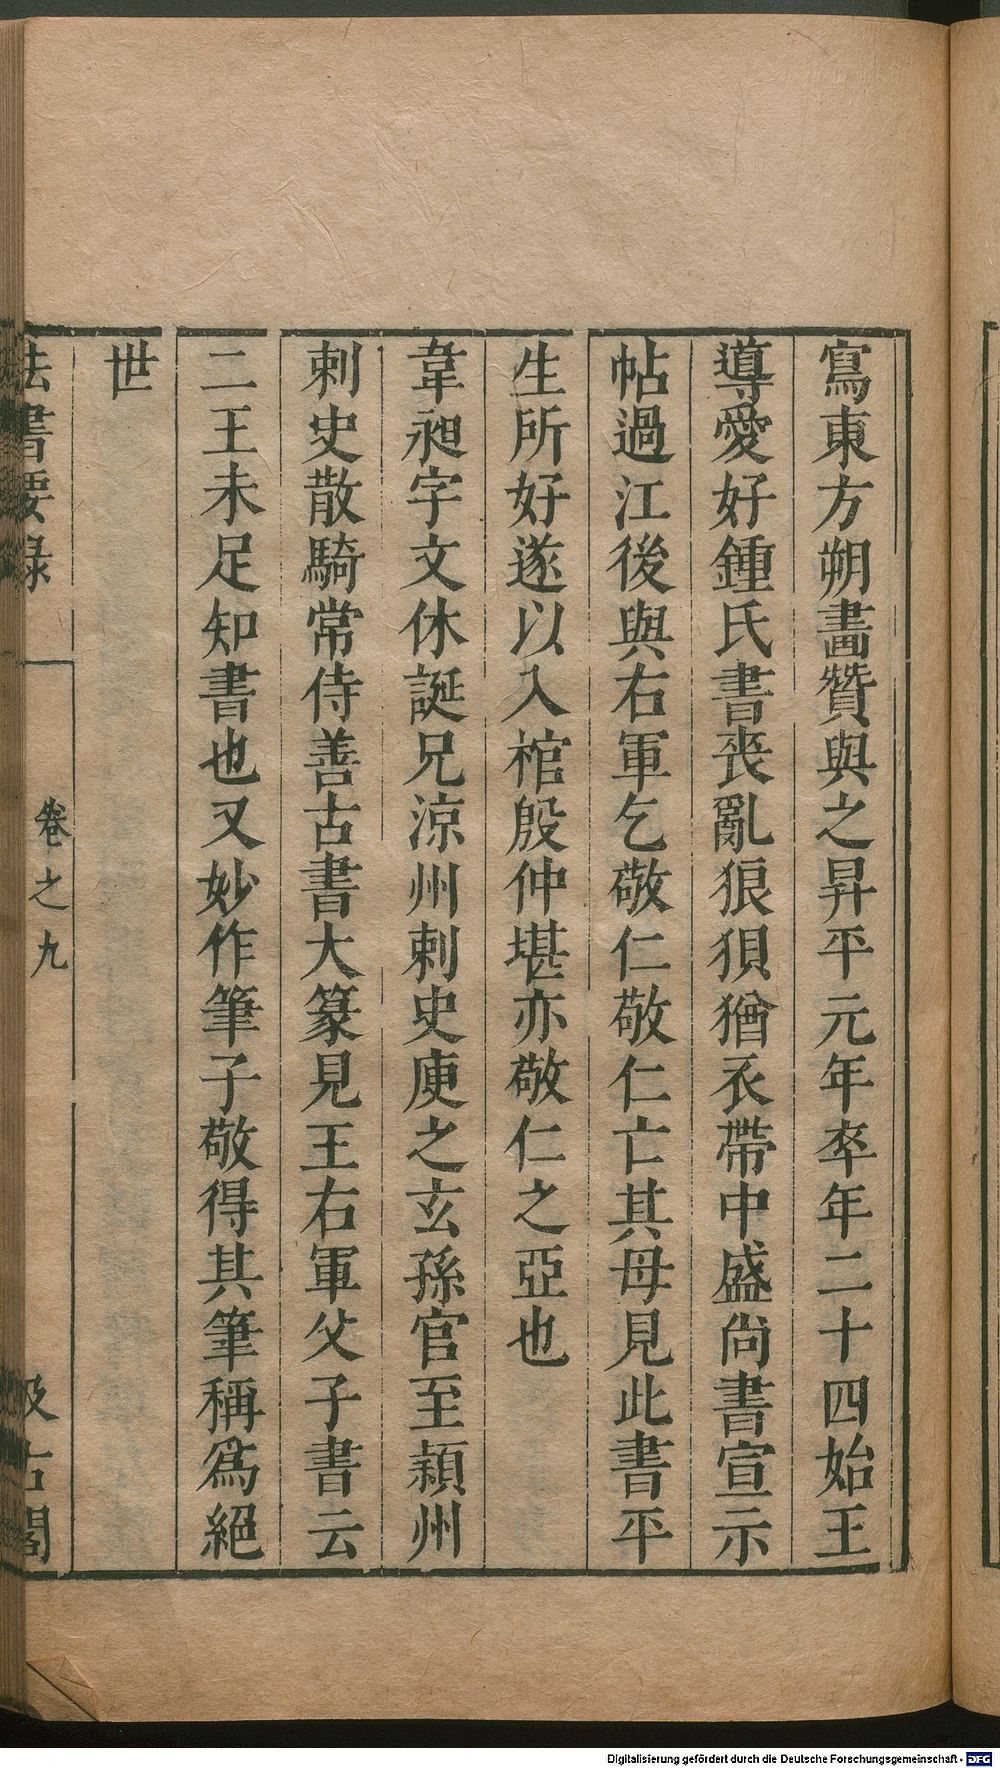 寫東方朔畫贊與之昇平元年卒年二十四始王
導愛好鍾氏書喪亂狼狽猶衣帶中盛尚書宣示
帖過江後與右軍乞敬仁敬仁亡其母見此書平
生所好遂以入棺殷仲堪亦敬仁之亞也
韋昶字文休誕兄涼州刺史庾之玄孫官至潁州
刺史散騎常侍善古書大篆見王右軍父子書云
二王未足知書也又妙作筆子敬得其筆稱爲絕
世
法書要錄
卷之九
汲古閣
Digitalisierung gefördert durch die Deutsche Forschungsgemeinschaft - DFG